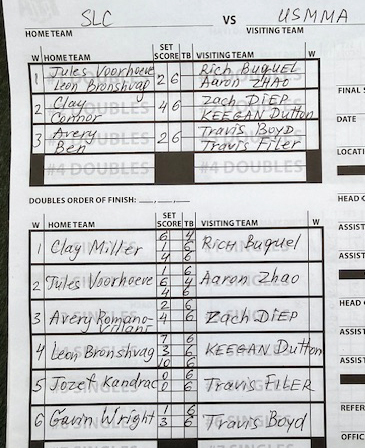 SLC VS USMMA
HOME TEAM VISITING TEAM
W HOME TEAM SET SCORE TB VISITING TEAM W
1 Jules Voorhoeve 2 6 Rich Buquel
Leon Bronshvag Aaron Zhao
2 Clay 4 6 Zach Diep
Connor KEEGAN Dutton
3 Avery 2 6 Travis Boyd
Ben Travis Filer
#4 DOUBLES #4 DOUBLES
DOUBLES ORDER OF FINISH:
W HOME TEAM SET SCORE TB VISITING TEAM W
1 Clay Miller Rich Buquel
2 Jules Voorhoeve Aaron Zhao
3 Avery Romano- Zach DIEP
Villani
4 Leon Bronshvag KEEGAN Dutton
5 Jozef Kandrac Travis FILER
6 Gavin Wright Travis Boyd
FINAL S
DATE
LOCATI
HEAD C
ASSIST
ASSIST
HEAD
ASSIST
ASSIST
REFER
OFFIC